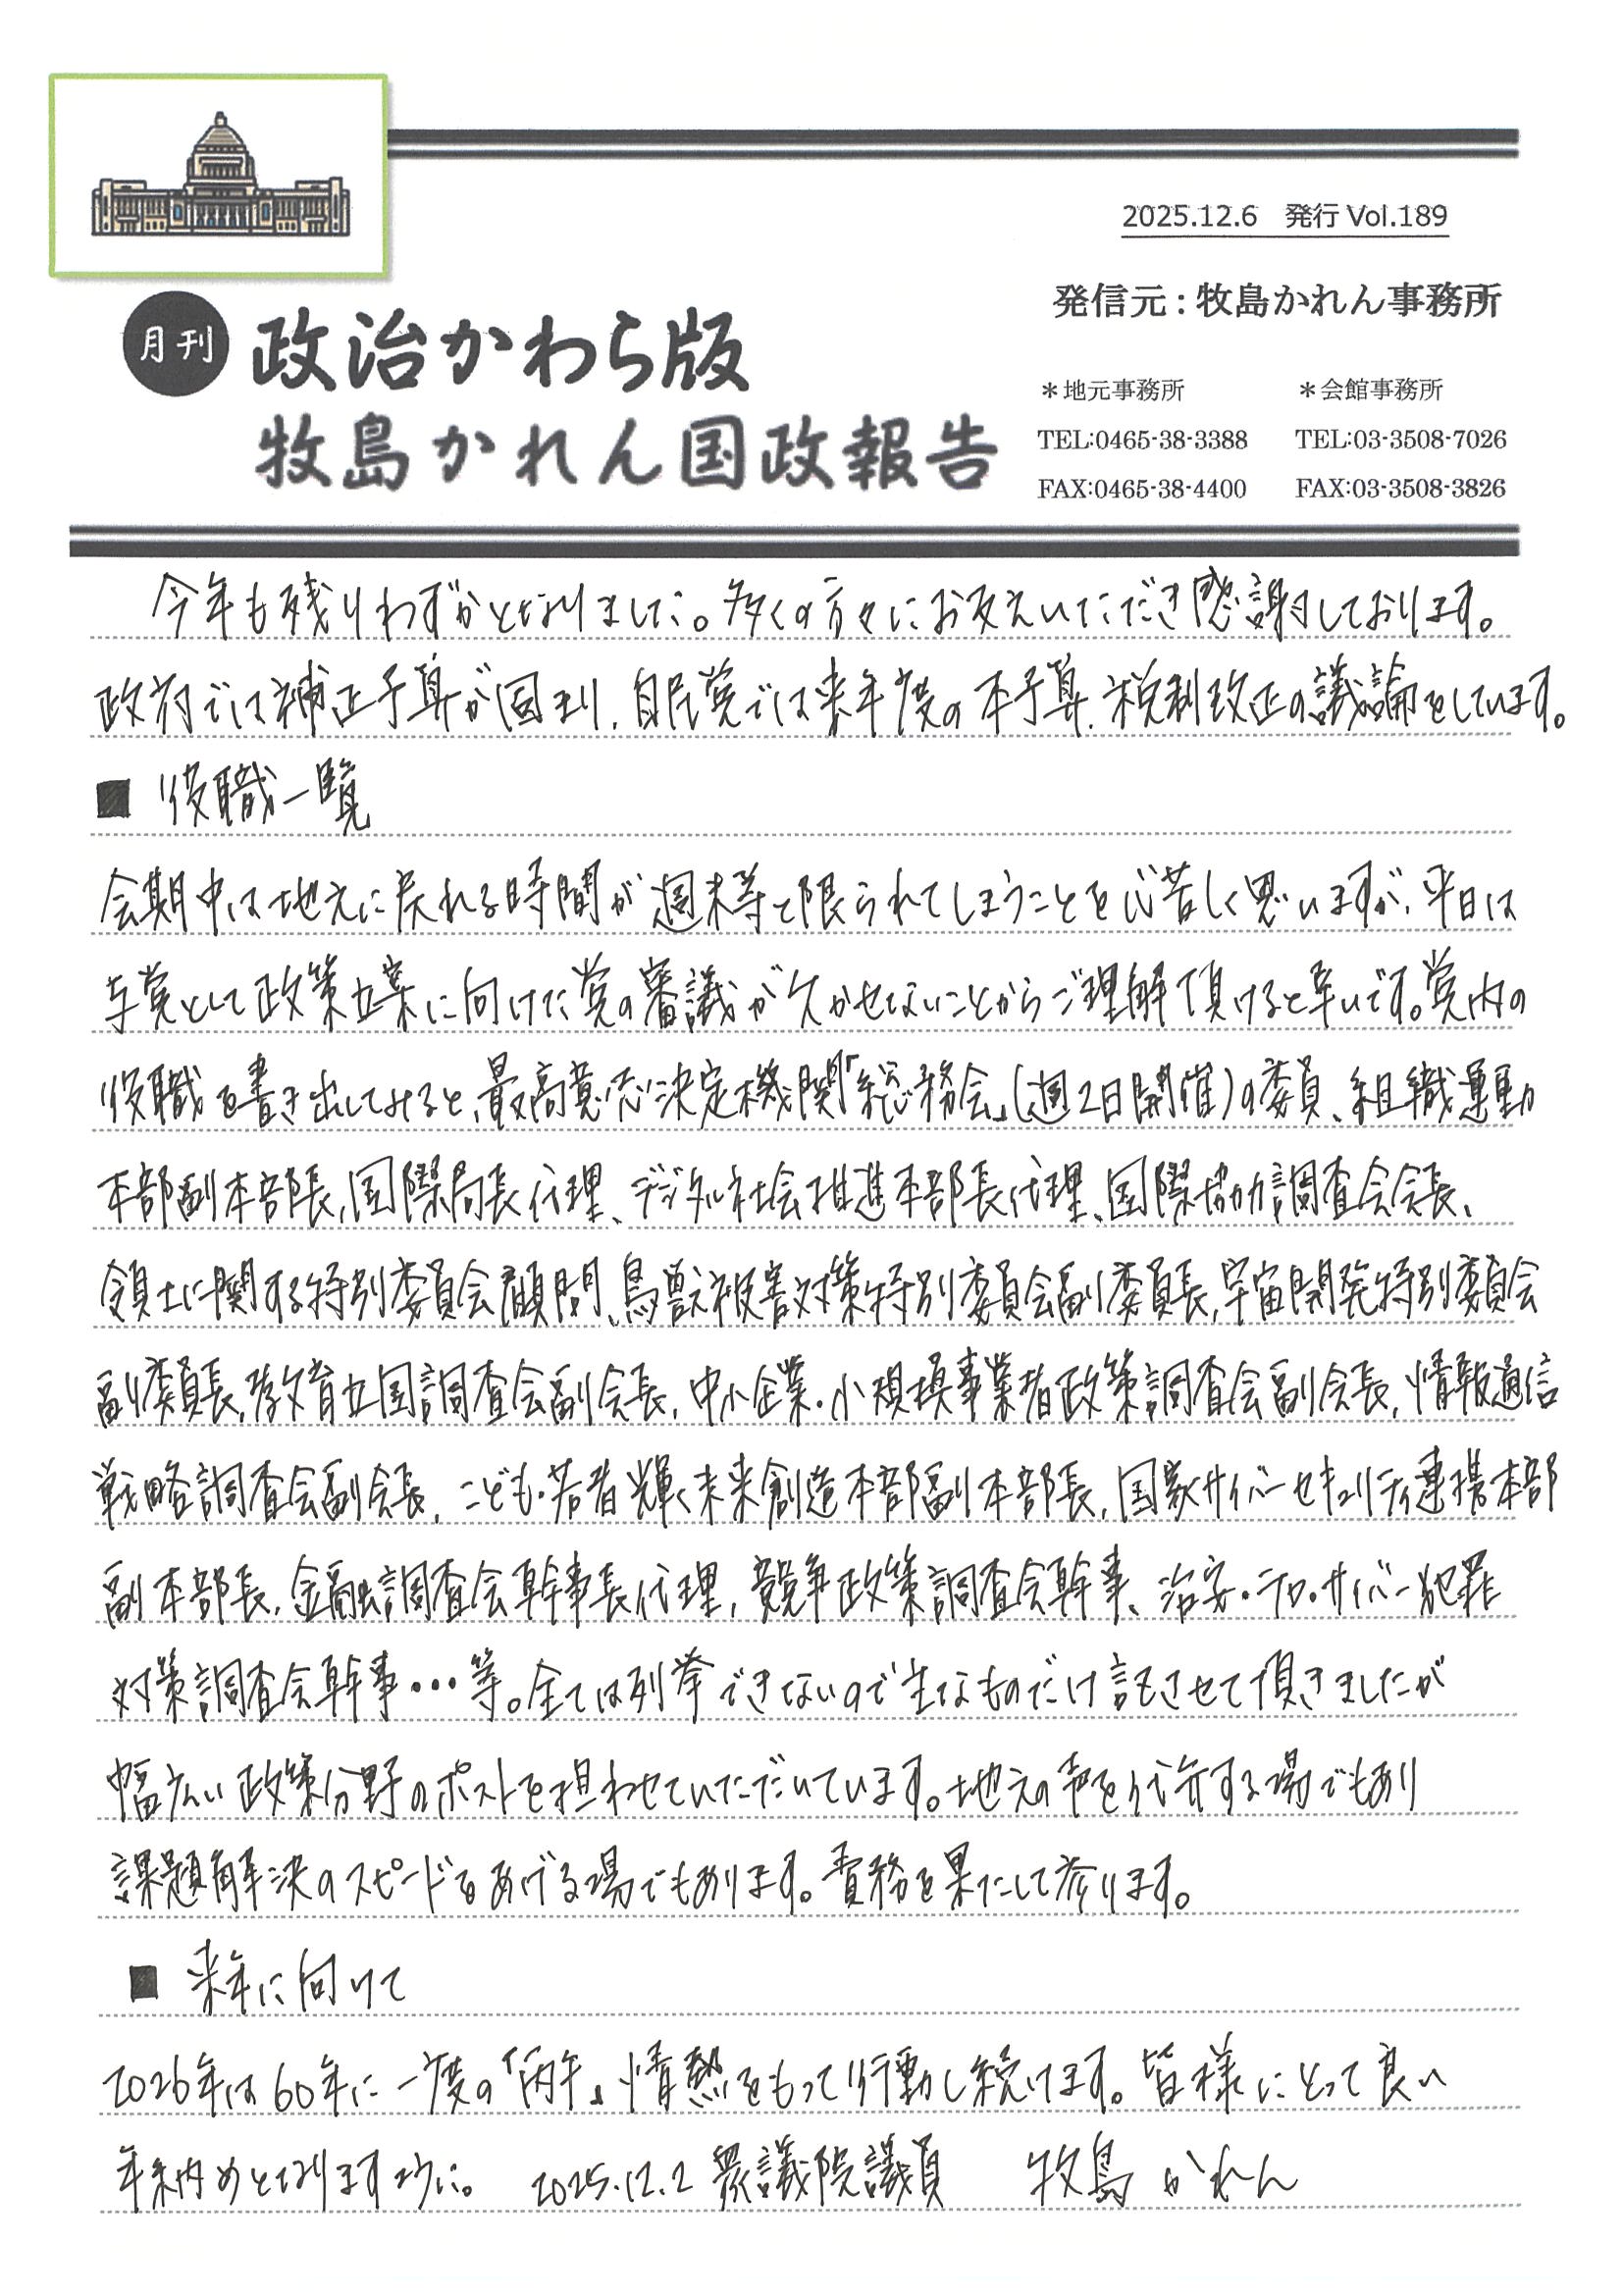 2025.12.6 発行 Vol.189
発信元:牧島かれん事務所
月刊 政治かわら版
牧島かれん国政報告
＊地元事務所 ＊会館事務所
TEL:0465-38-3388 TEL:03-3508-7026
FAX:0465-38-4400 FAX:03-3508-3826
今年も残りわずかとなりました。多くの方々にお支えいただき感謝しております。
政府では補正予算が固まり、自民党では来年度の本予算、税制改正の議論をしています。
■ 役職一覧
会期中は地元に戻れる時間が週末等と限られてしまうことを心苦しく思いますが、平日は
与党として政策立案に向けた党の審議が欠かせないことからご理解頂けると幸いです。党内の
役職を書き出してみると、最高意思決定機関「総務会」(週2日開催)の委員、組織運動
本部副本部長、国際局長代理、デジタル社会推進本部長代理、国際協力調査会会長、
領土に関する特別委員会顧問、鳥獣被害対策特別委員会副委員長、宇宙開発特別委員会
副委員長、教育立国調査会副会長、中小企業・小規模事業者政策調査会副会長、情報通信
戦略調査会副会長、こども・若者輝く未来創造本部副本部長、国家サイバーセキュリティ連携本部
副本部長、金融調査会幹事長代理、競争政策調査会幹事、治安・テロ・サイバー犯罪
対策調査会幹事…等。全ては列挙できないので主なものだけ記させて頂きましたが
幅広い政策分野のポストを担わせていただいています。地元の声を代弁する場でもあり
課題解決のスピードをあげる場でもあります。責務を果たして参ります。
■ 来年に向けて
2026年は60年に一度の「丙午」情熱をもって行動し続けます。皆様にとって良い
年末納めとなりますように。 2025.12.2 衆議院議員 牧島かれん